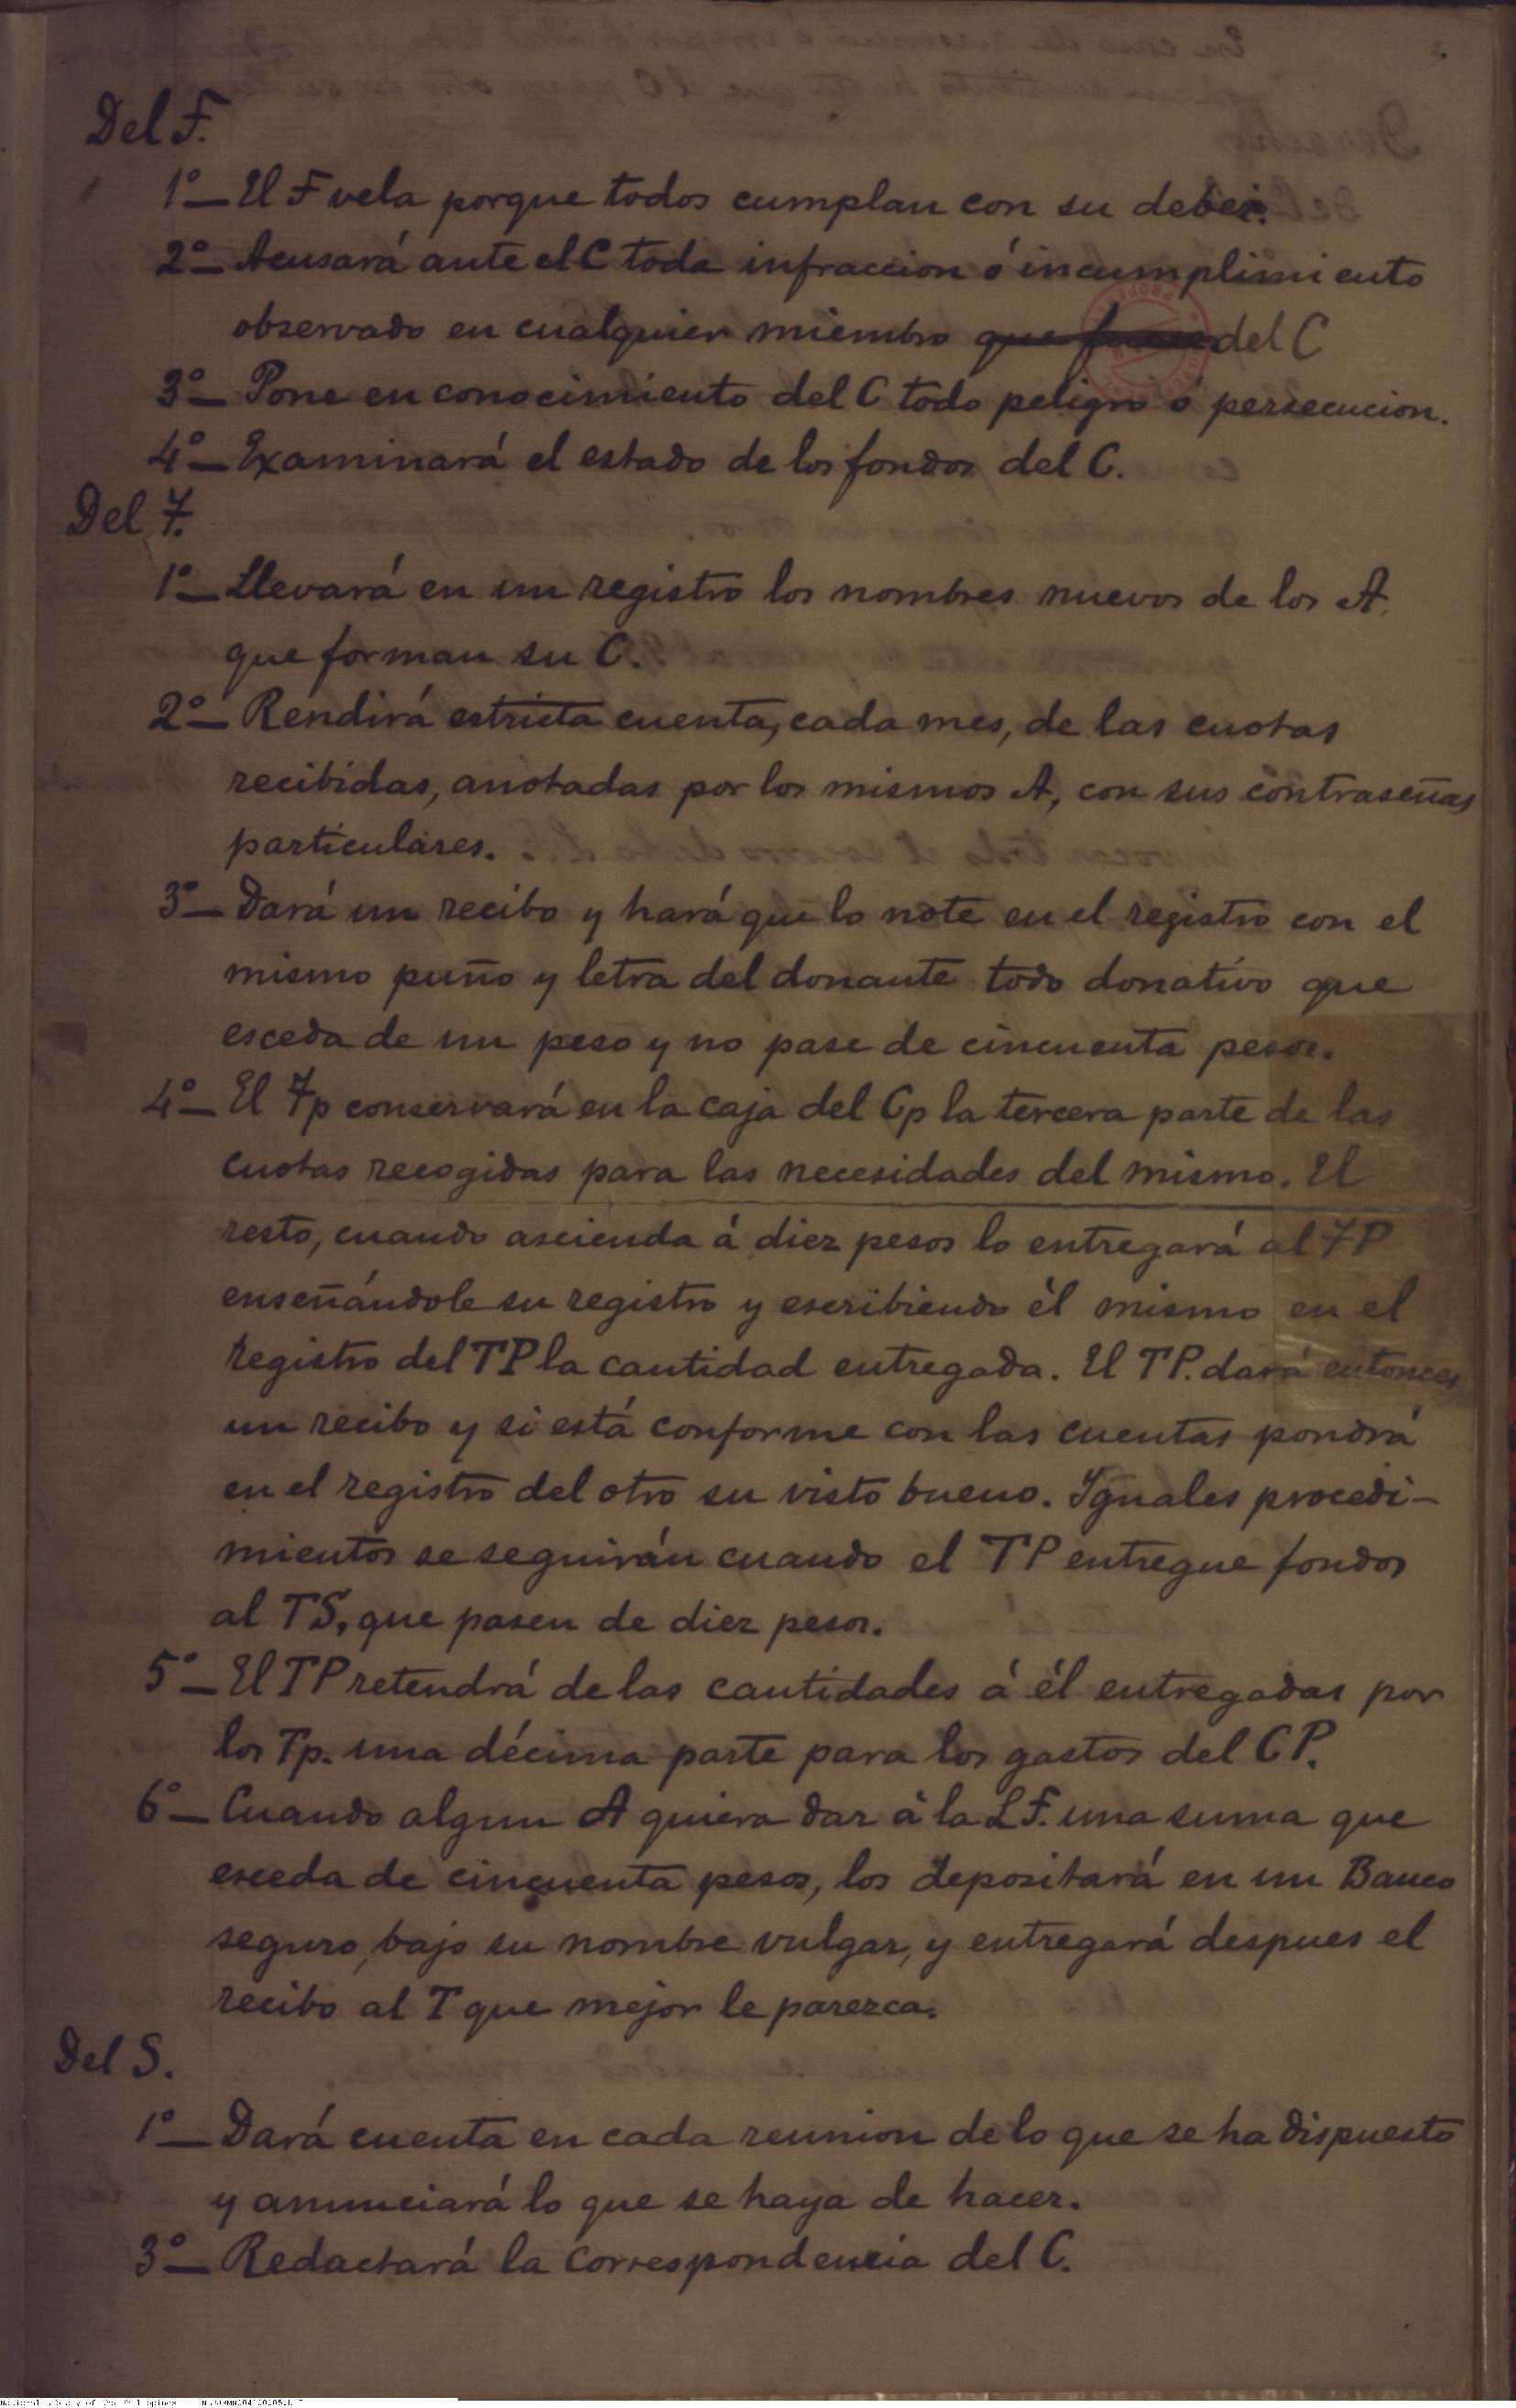 Del F.
1º— El F vela porque todos cumplan con su deber.
2º— Acusará ante el C toda infraccion ó incumplimiento
observado en cualquier miembro que fuese del C
3º— Pone en conocimiento del C todo peligro ó persecucion.
4º— Examinará el estado de los fondos del C.
Del T.
1º— Llevará en un registro los nombres nuevos de los A
que forman su C.
2º— Rendirá estricta cuenta, cada mes, de las cuotas
recibidas, anotadas por los mismos A, con sus contraseñas
particulares.
3º— Dará un recibo y hará que lo note en el registro con el
mismo puño y letra del donante todo donativo que
esceda de un peso y no pase de cincuenta pesos.
4º— El Tp conservará en la caja del Cp la tercera parte de las
cuotas recogidas para las necesidades del mismo. El
resto, cuando ascienda á diez pesos lo entregará al TP
enseñándole su registro y escribiendo él mismo en el
registro del TP la cantidad entregada. El TP. dará entonces
un recibo y si está conforme con las cuentas pondrá
en el registro del otro su visto bueno. Iguales procedi-
mientos se seguirán cuando el TP entregue fondos
al TS, que pasen de diez pesos.
5º— El TP retendrá de las cantidades á él entregadas por
los Tp. una décima parte para los gastos del CP.
6º— Cuando algun A quiera dar á la LF. una suma que
esceda de cincuenta pesos, los depositará en un Banco
seguro, bajo su nombre vulgar, y entregará despues el
recibo al T que mejor le parezca.
Del S.
1º— Dará cuenta en cada reunion de lo que se ha dispuesto
y anunciará lo que se haya de hacer.
3º— Redactará la correspondencia del C.